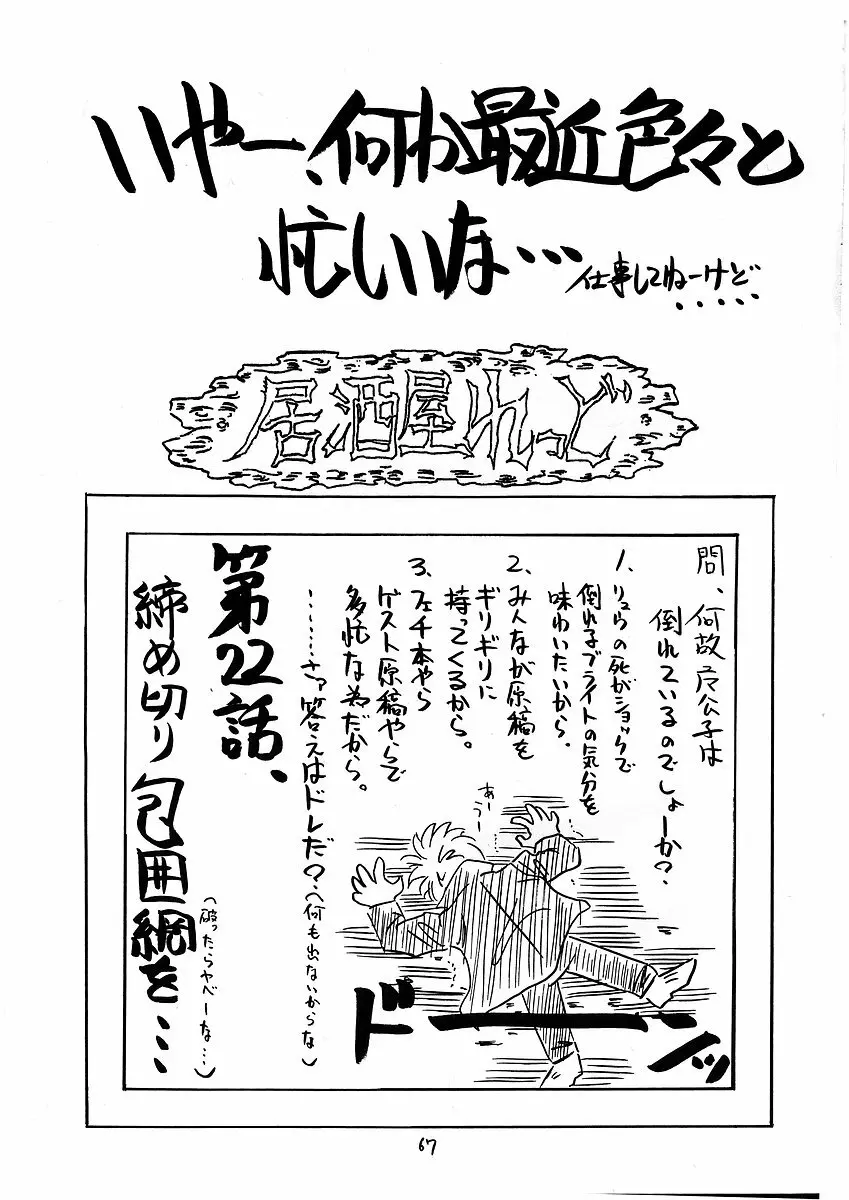 いやー、何か最近色々と
忙しいな…
仕事してねーけど.....
居酒屋れっど
問、何故
公子は
倒れているのでしょーか?
1、リュウの死がショックで
倒れ子ブライトの気分を
味わいたいから。
2、みんなが原稿を
ギリギリに
持ってくるから。
3、フェチ本やら
ゲスト原稿やらで
多忙な為だから。
………さァ答えはドレだ?
(何も出ないからな)
第22話、
締め切り包囲網を…
(破ったらヤベーな…)
あー
うー
ドーーンッ
67